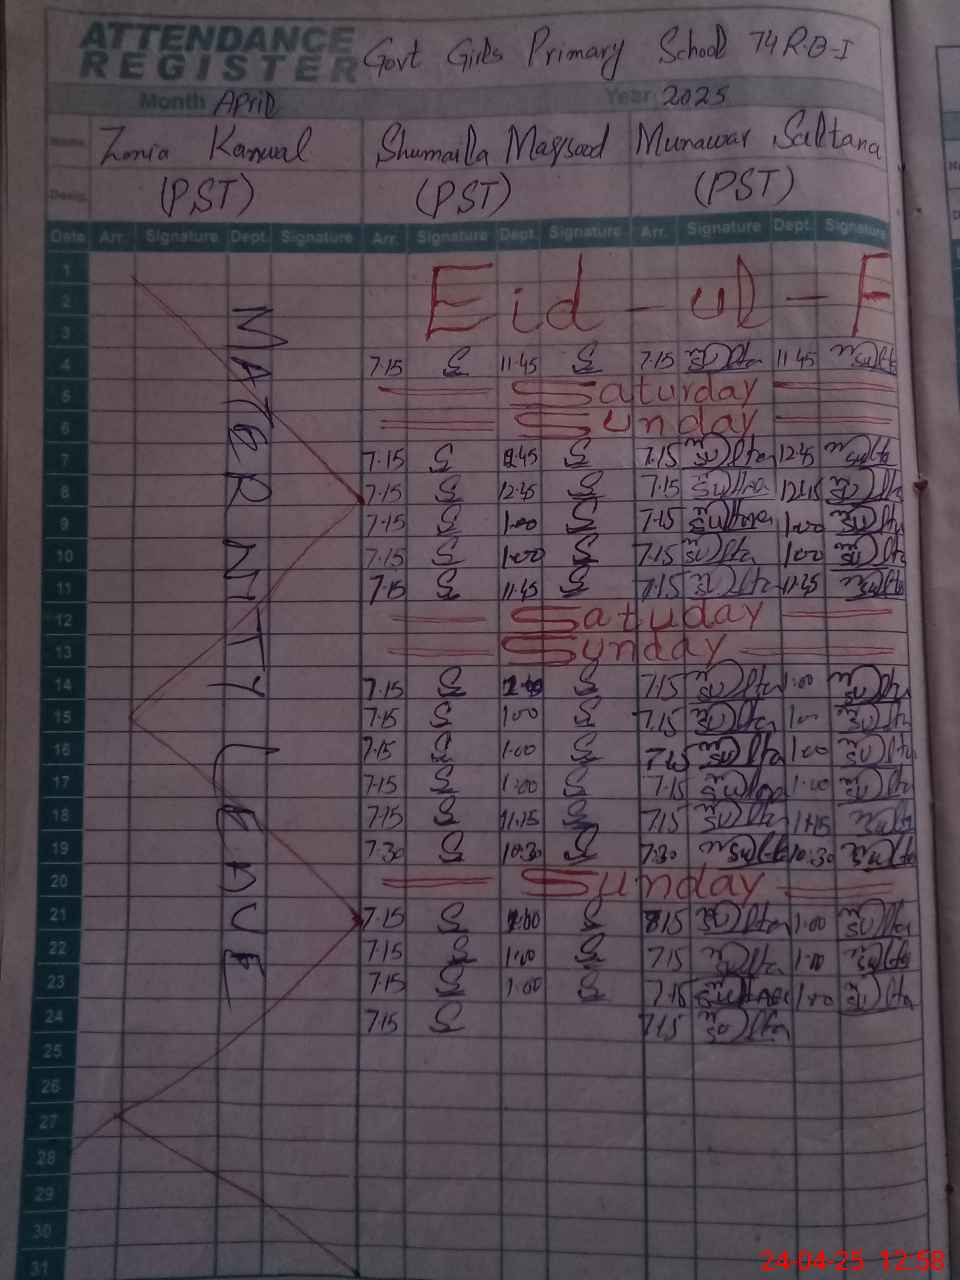 ATTENDANCE REGISTER Govt Girls Primary School 74 R.B-I
Month April Year 2025
Name Zonia Kanwal Shumaila Maqsood Munawar Sultana
Desig. (PST) (PST) (PST)
Date Arr. Signature Dept. Signature Arr. Signature Dept. Signature Arr. Signature Dept. Signature
MATERNITY LEAVE
1
2 Eid - ul - F
3
4 7.15 11.45 7.15 11.45
5 Saturday
6 Sunday
7 7.15 12.45 7.15 12.45
8 7.15 12.45 7.15
9 7.15 1.00 7.15 1.00
10 7.15 1.00 7.15 1.00
11 7.15 11.45 7.15 11.45
12 Satuday
13 Sunday
14 7.15 7.15 1.00
15 7.15 1.00 7.15
16 7.15 1.00 7.15 1.00
17 7.15 1.00 7.15 1.00
18 7.15 11.15 7.15 11.15
19 7.30 10.30 7.30 10.30
20 Sunday
21 7.15 1.00
22 7.15 1.00 7.15 1.00
23 7.15 1.00 7.15 1.00
24 7.15 7.15
25
26
27
28
29
30
31
24-04-25 12:58